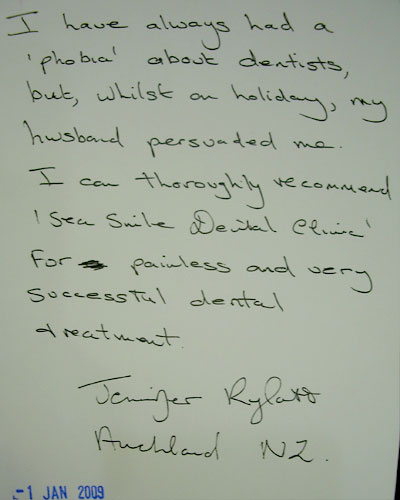 I have always had a
'phobia' about dentists,
but, whilst on holiday, my
husband persuaded me.
I can thoroughly recommend
'Sea Smile Dental Clinic'
For painless and very
successful dental
treatment.
Jennifer Rylatt
Auckland NZ.
-1 JAN 2009